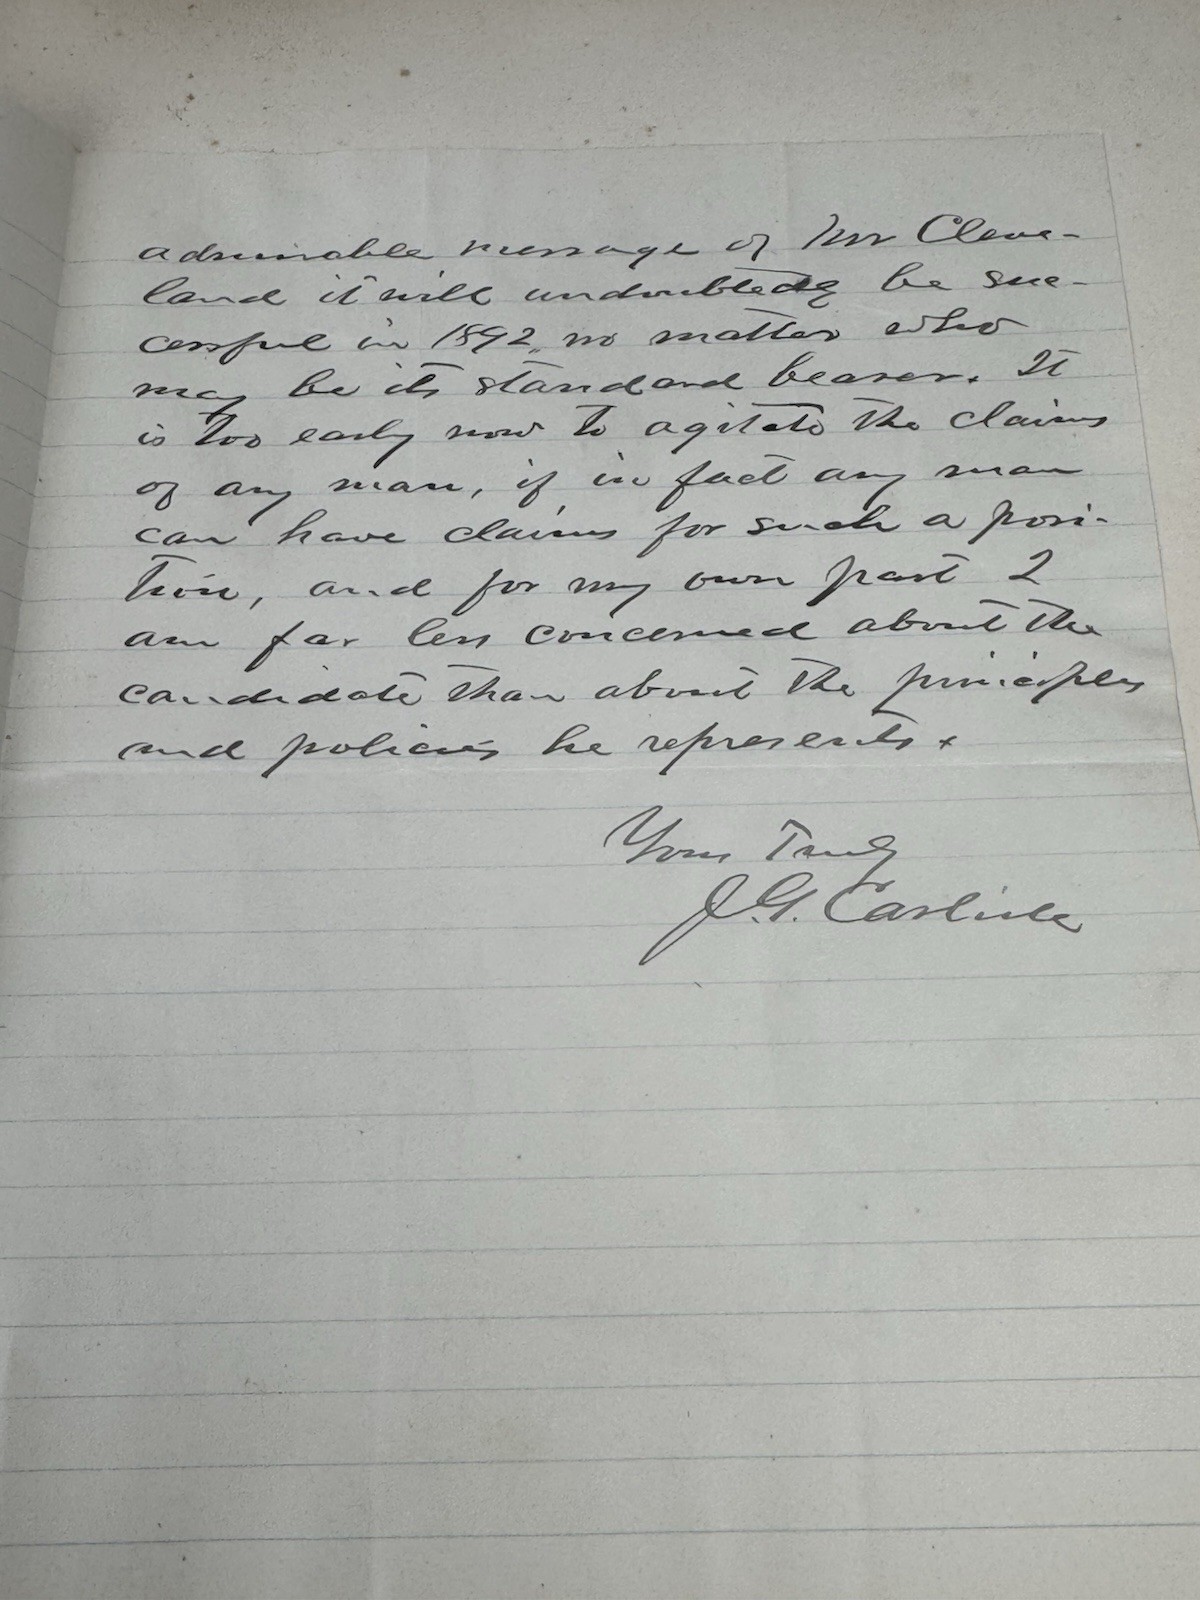 admirable message of Mr Cleve-
land it will undoubtedly be suc-
cessful in 1892, no matter who
may be its standard bearer. It
is too early now to agitate the claims
of any man, if in fact any man
can have claims for such a posi-
tion, and for my own part I
am far less concerned about the
candidate than about the principles
and policies he represents.
Yours Truly
J.G. Carlisle